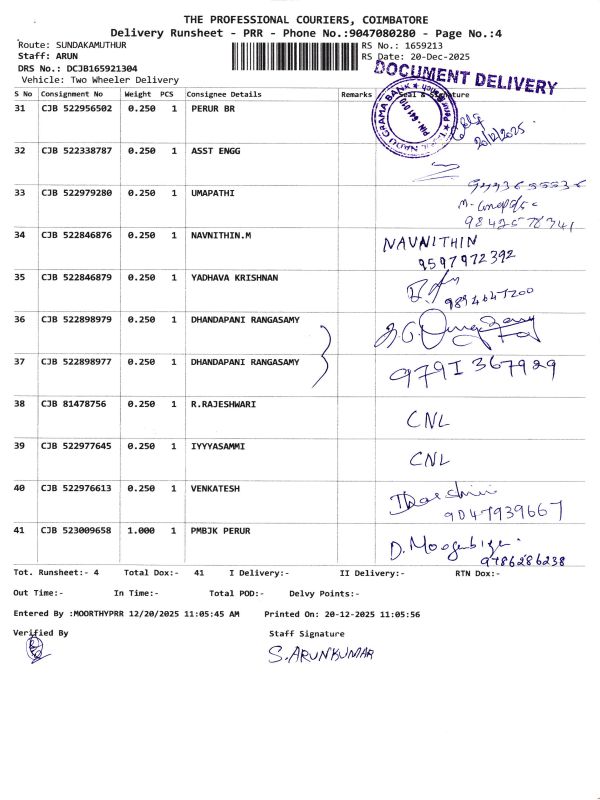 THE PROFESSIONAL COURIERS, COIMBATORE
Delivery Runsheet - PRR - Phone No.:9047080280 - Page No.:4
Route: SUNDAKAMUTHUR
RS No.: 1659213
Staff: ARUN
RS Date: 20-Dec-2025
DRS No.: DCJB165921304
Vehicle: Two Wheeler Delivery
DOCUMENT DELIVERY
S No Consignment No Weight PCS Consignee Details Remarks Seal & Signature
31 CJB 522956502 0.250 1 PERUR BR
20/12/2025
32 CJB 522338787 0.250 1 ASST ENGG
33 CJB 522979280 0.250 1 UMAPATHI
34 CJB 522846876 0.250 1 NAVNITHIN.M NAVNITHIN
9597972392
35 CJB 522846879 0.250 1 YADHAVA KRISHNAN
9894647200
36 CJB 522898979 0.250 1 DHANDAPANI RANGASAMY
37 CJB 522898977 0.250 1 DHANDAPANI RANGASAMY 9791367929
38 CJB 81478756 0.250 1 R.RAJESHWARI CNL
39 CJB 522977645 0.250 1 IYYYASAMMI CNL
40 CJB 522976613 0.250 1 VENKATESH
9047939667
41 CJB 523009658 1.000 1 PMBJK PERUR
9786286238
Tot. Runsheet:- 4 Total Dox:- 41 I Delivery:- II Delivery:- RTN Dox:-
Out Time:- In Time:- Total POD:- Delvy Points:-
Entered By :MOORTHYPRR 12/20/2025 11:05:45 AM Printed On: 20-12-2025 11:05:56
Verified By Staff Signature
S.ARUNKUMAR